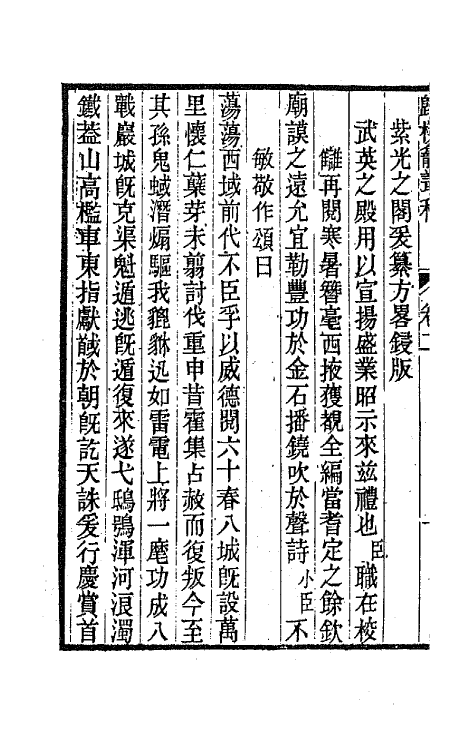 卷二
紫光之閣爰纂方畧鋟版
武英之殿用以宣揚盛業昭示來兹禮也臣職在校
讎再閱寒暑簪毫西掖獲覩全編當耆定之餘欽
廟謨之遠允宜勒豐功於金石播鐃吹於聲詩小臣不
敏敬作頌曰
蕩蕩西域前代不臣孚以威德閱六十春八城旣設萬
里懷仁蘖芽未翦討伐重申昔霍集占赦而復叛今至
其孫鬼蜮潛煽驅我貔貅迅如雷電上將一麾功成八
戰巖城旣克渠魁遁逃旣遁復來遂弋鴟鴞渾河浪濁
鐵葢山高檻車東指獻馘於朝旣訖天誅爰行慶賞首